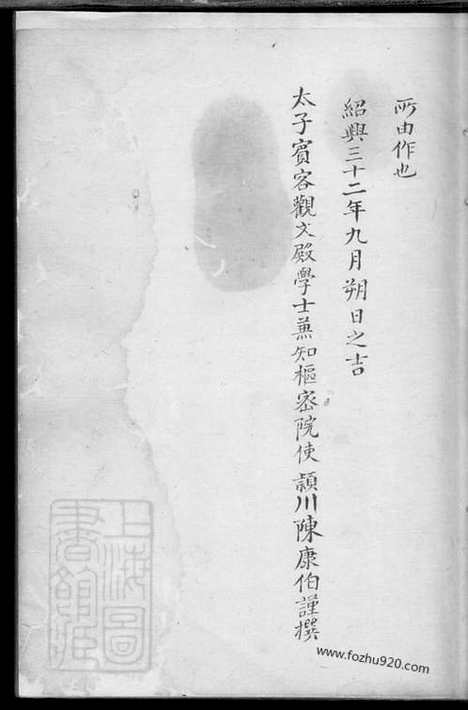 所由作也
紹興三十二年九月朔日之吉
太子賓客觀文殿學士兼知樞密院使潁川陳康伯謹撰
上海圖書館藏
www.fozhu920.com